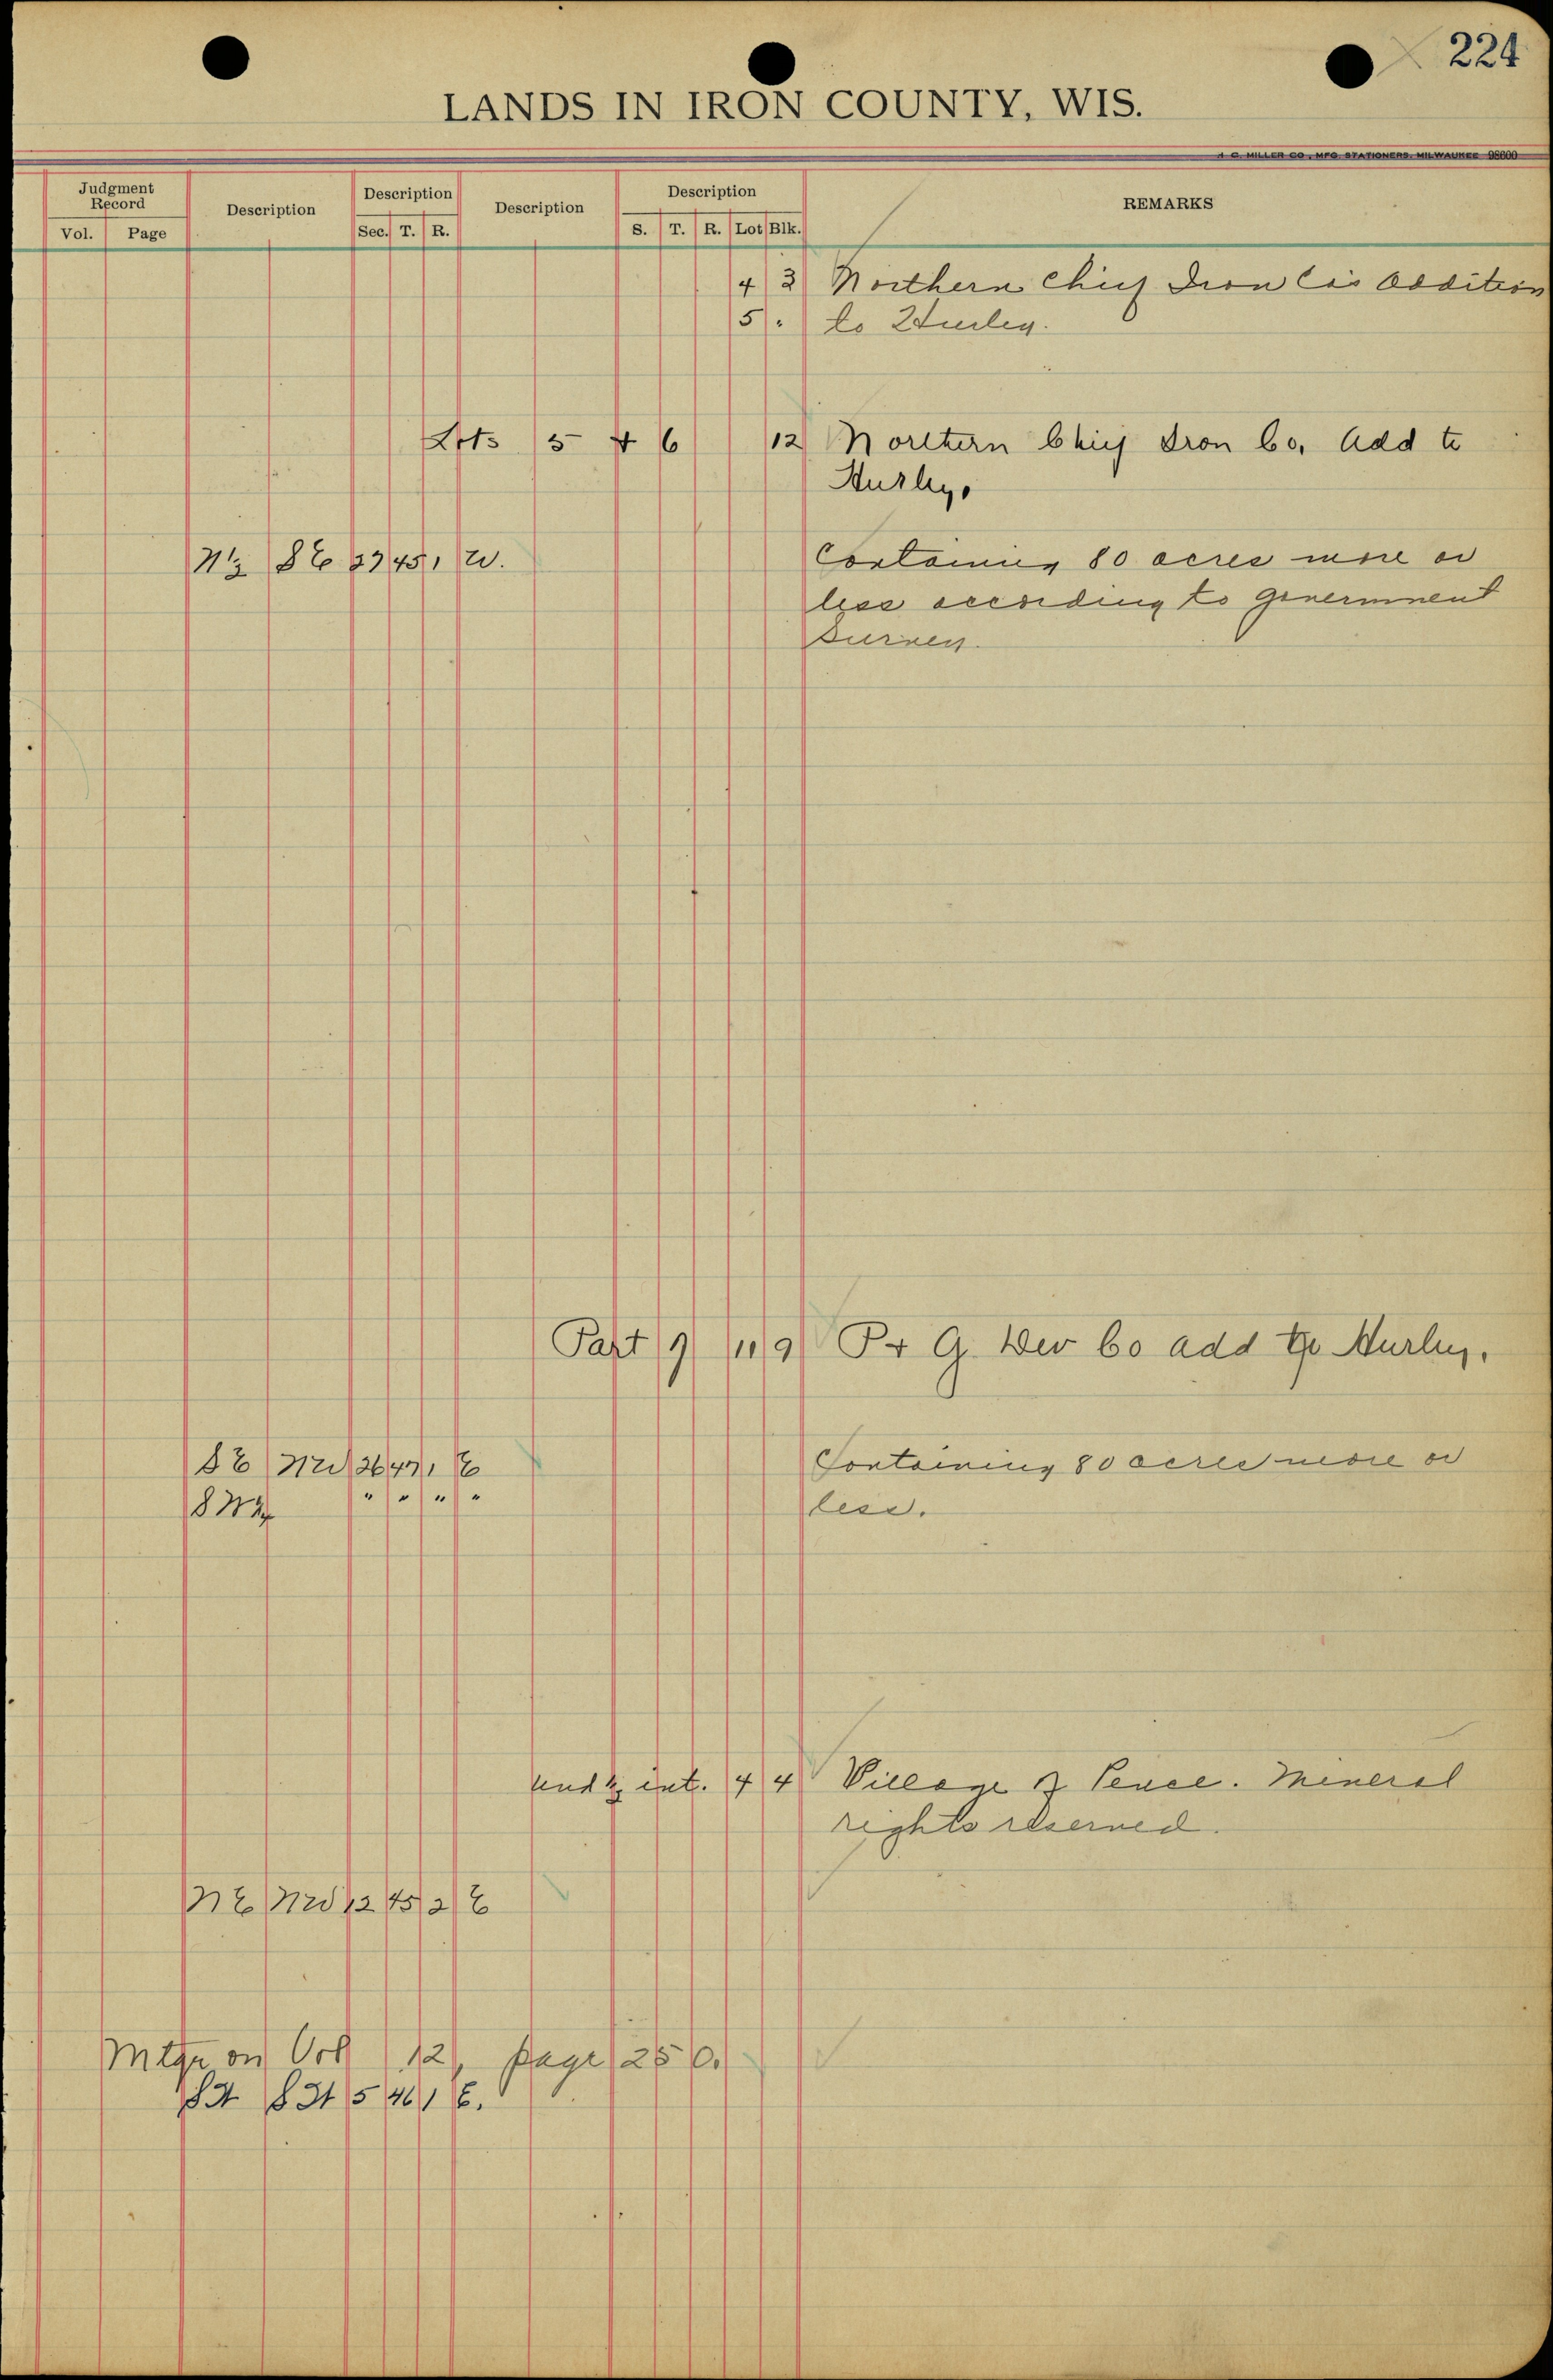 224
LANDS IN IRON COUNTY, WIS.
H. C. MILLER CO., MFG. STATIONERS, MILWAUKEE 98600
Judgment Record Description Description Description Description REMARKS
Vol. Page Sec. T. R. S. T. R. Lot Blk.
4 3 Northern Chief Iron Co's Addition
5 " to Hurley.
Lots 5 + 6 12 Northern Chief Iron Co. Add to
Hurley.
N½ SE 27 45 1 W. Containing 80 acres more or
less according to Government
Survey.
Part 9 11 9 P + G. Dev Co add to Hurley.
SE NW 26 47 1 E Containing 80 acres more or
" " " " less.
und ½ int. 4 4 Village of Pence. Mineral
rights reserved.
NE NW 12 45 2 E
Mtge on Vol 12, page 250.
5 46 1 E.